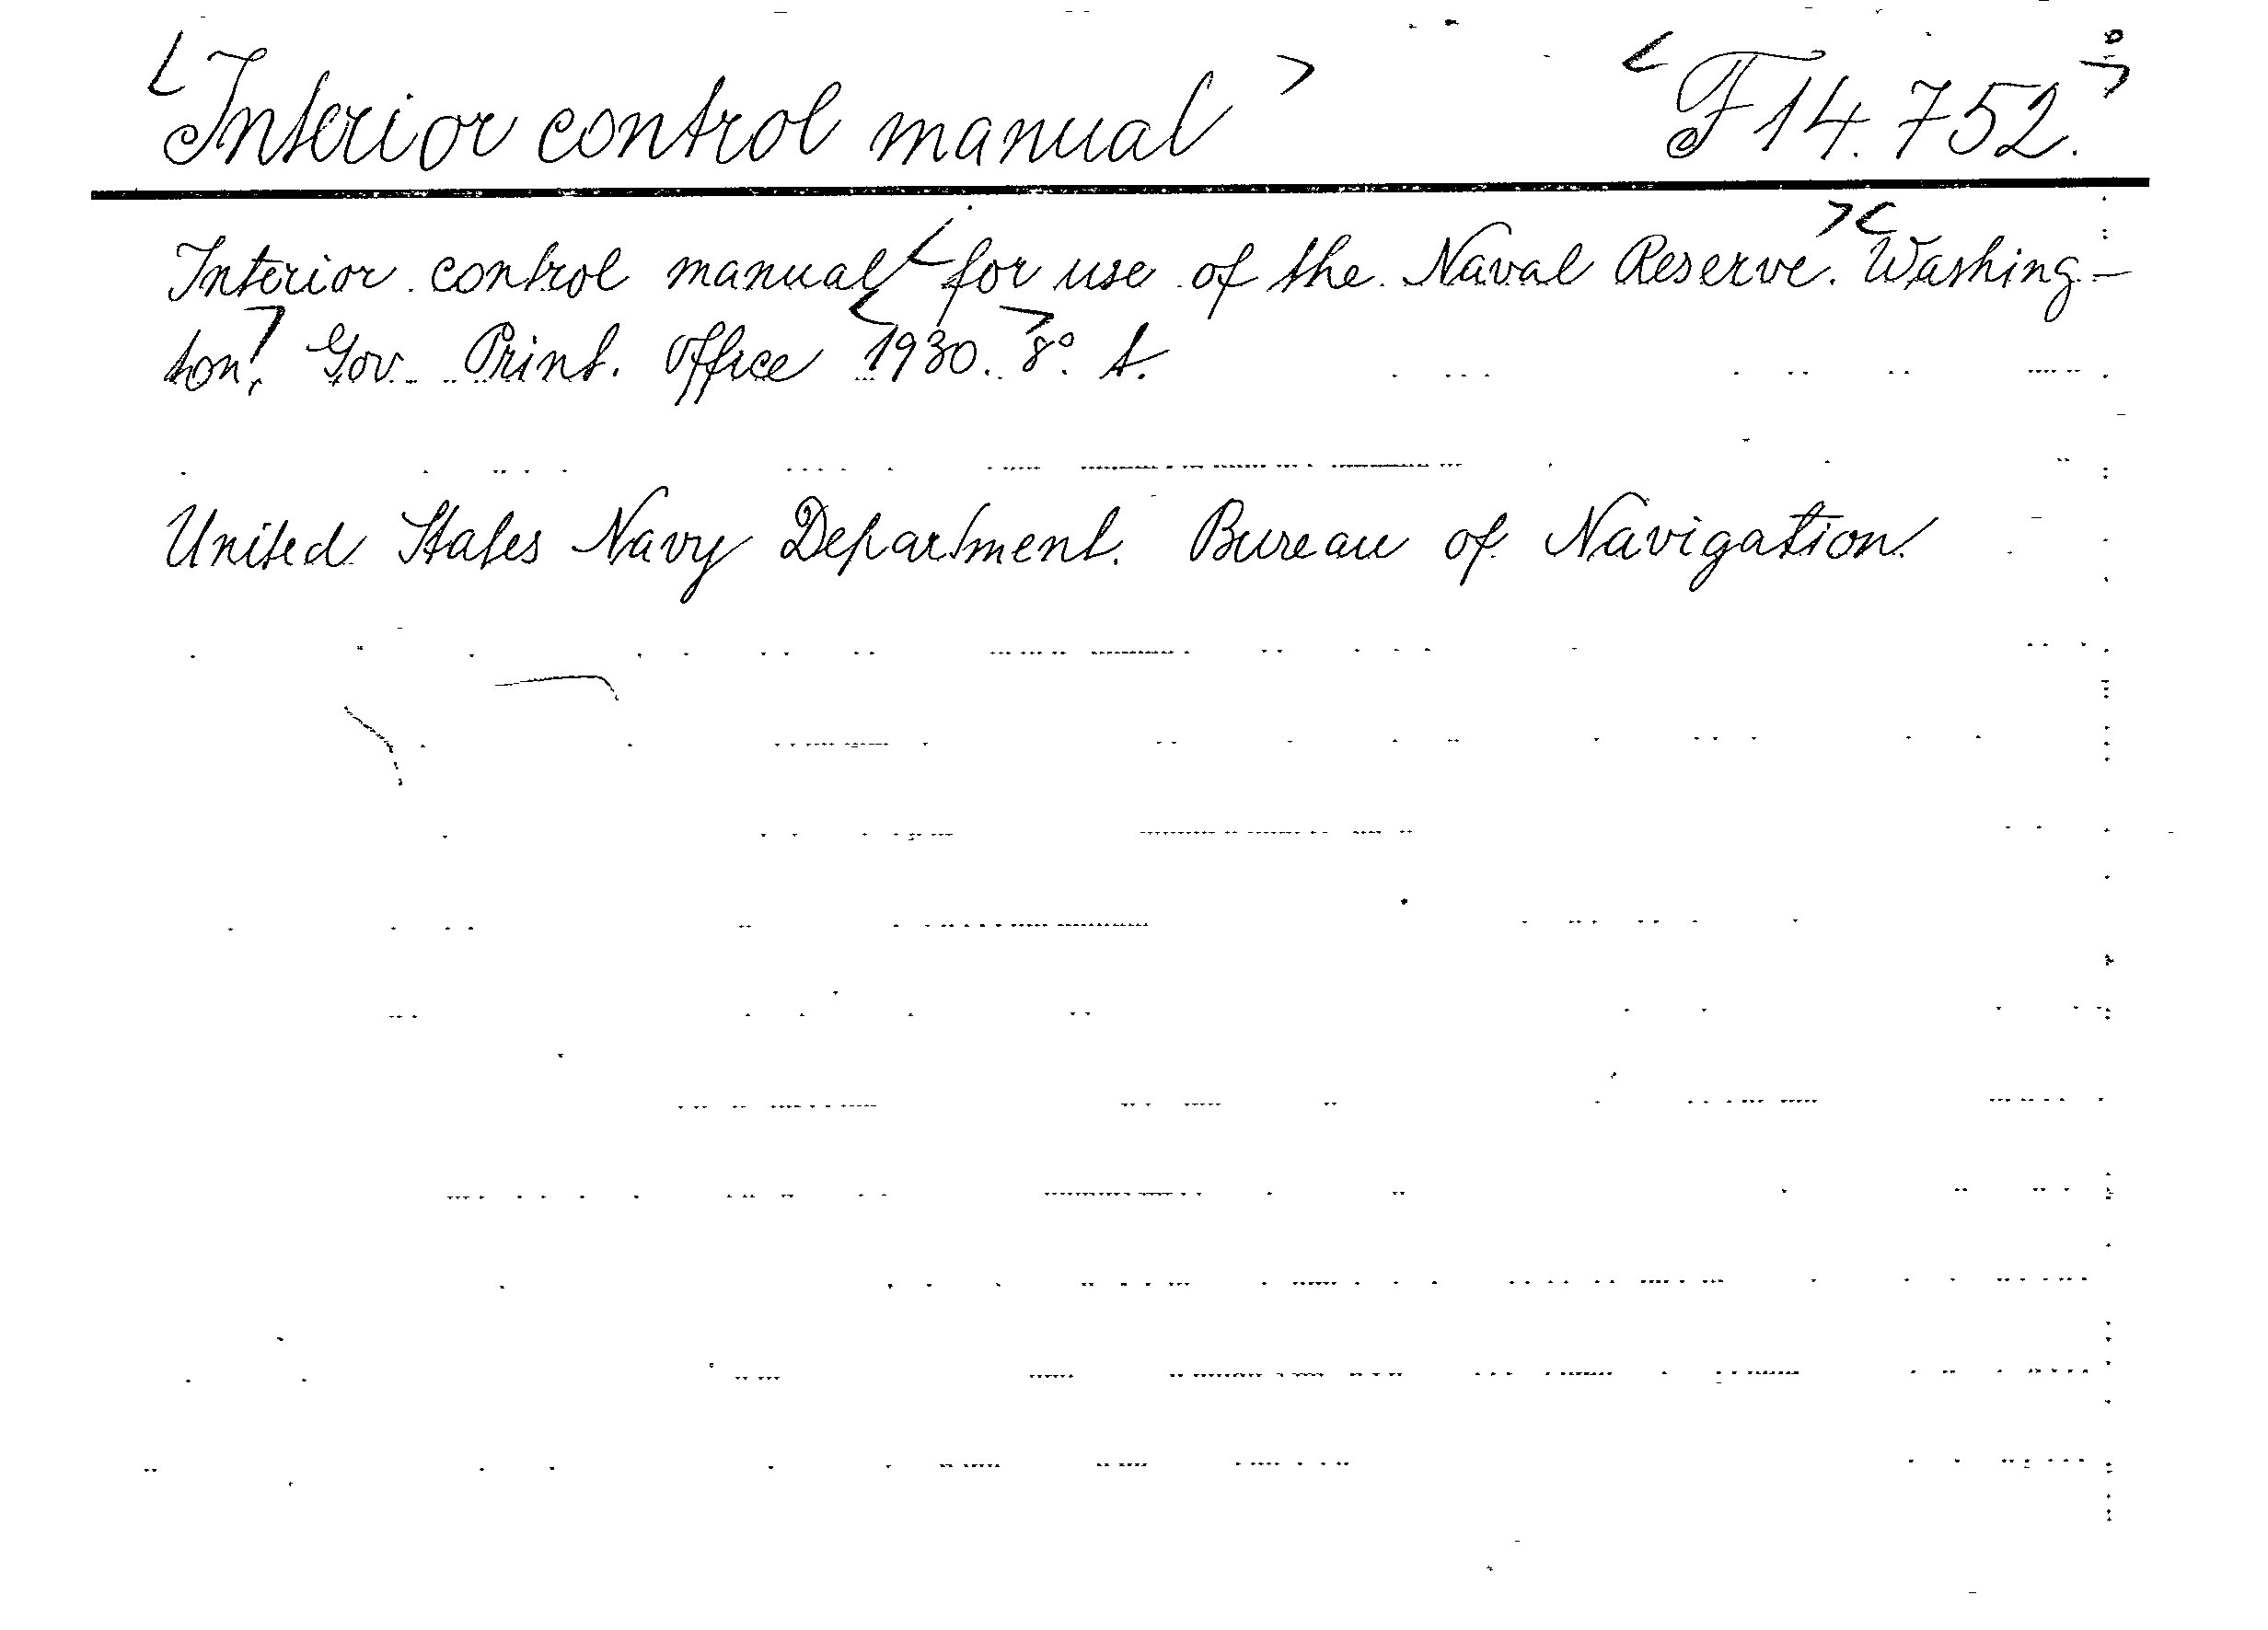 Interior control manual F 14.752.
Interior control manual for use of the Naval Reserve. Washing-
ton. Gov. Print. Office 1930. 8°. t.
United States Navy Department. Bureau of Navigation.